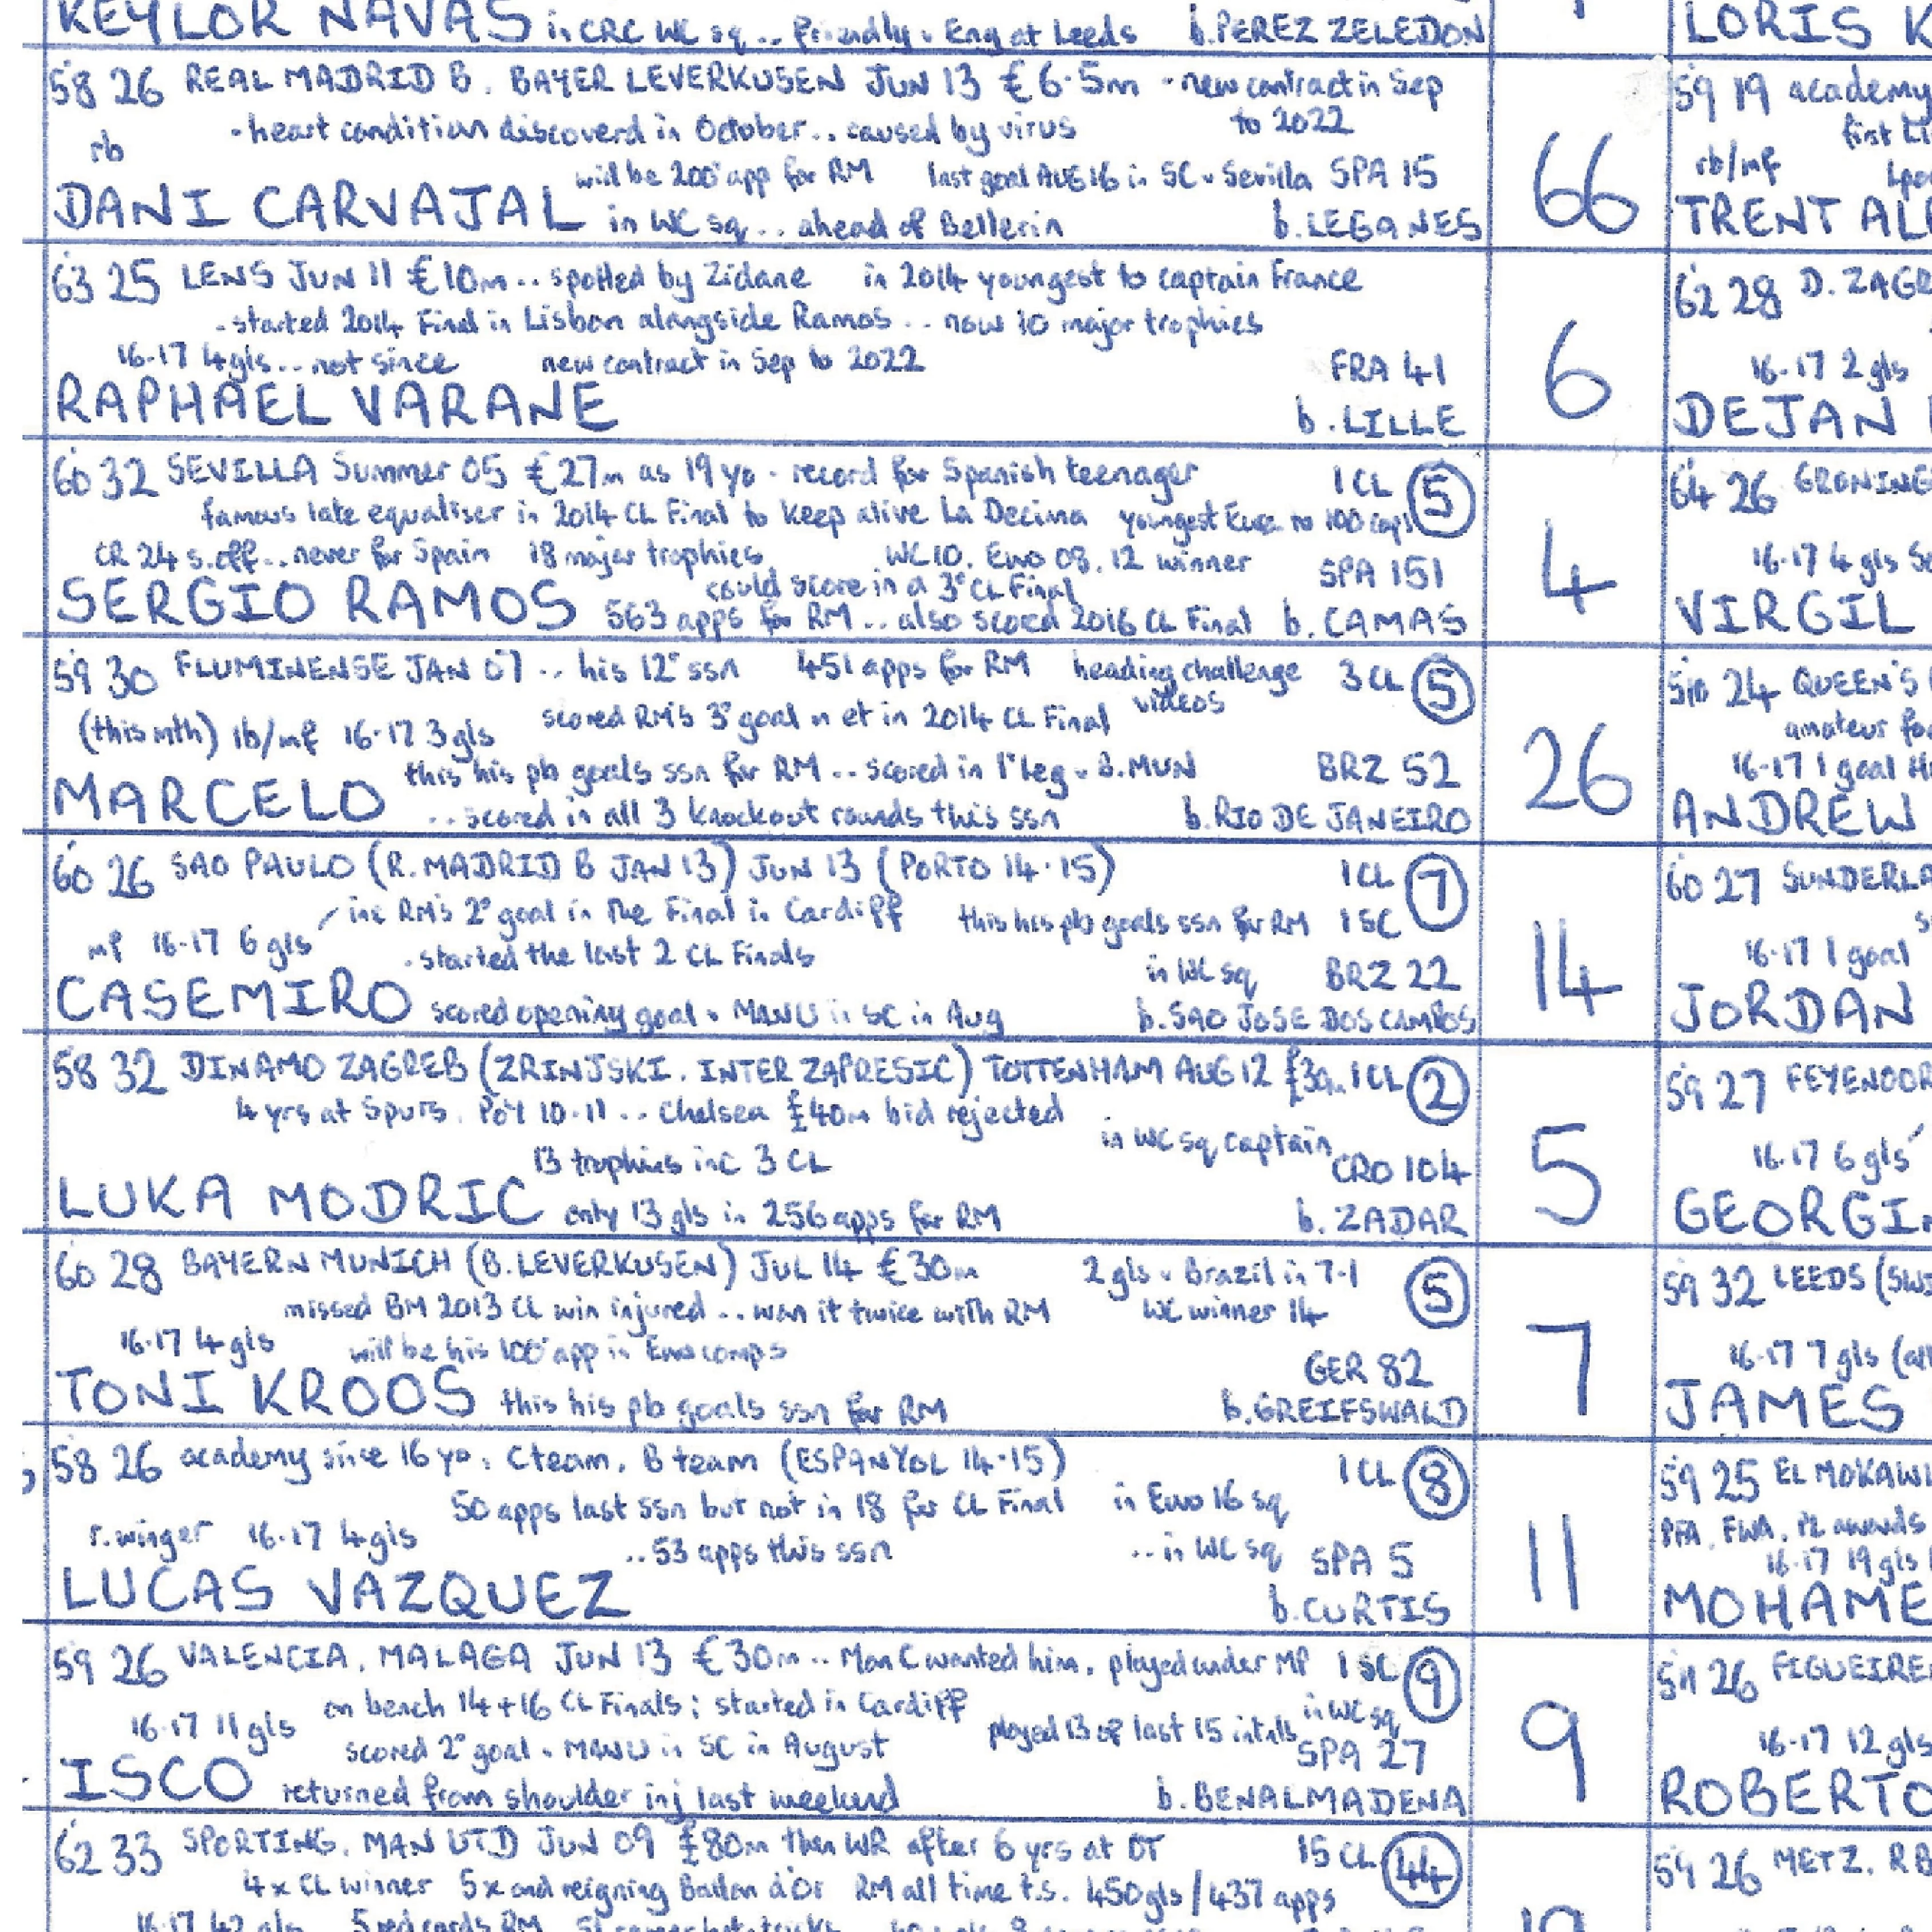 KEYLOR NAVAS in CRC WC sq.. friendly v Eng at Leeds b.PEREZ ZELEDON
LORIS K
58 26 REAL MADRID B. BAYER LEVERKUSEN JUN 13 €6.5m - new contract in Sep
to 2022
- heart condition discoverd in October.. caused by virus
rb
will be 200° app for RM last goal AUG 16 in SC v Sevilla SPA 15
DANI CARVAJAL in WC sq.. ahead of Bellerin b.LEGANES
66
59 19 academy
first
rb/mf
TRENT AL
63 25 LENS JUN 11 €10m.. spotted by Zidane in 2014 youngest to captain France
- started 2014 Final in Lisbon alongside Ramos.. now 10 major trophies
16-17 4gls.. not since new contract in Sep to 2022 FRA 41
RAPHAEL VARANE b.LILLE
6
62 28 D. ZAGR
16-17 2 gls
DEJAN
60 32 SEVILLA Summer 05 €27m as 19 yo - record for Spanish teenager 1 CL 5
famous late equaliser in 2014 CL Final to keep alive La Decima youngest Euro to 100 caps
CR 24 s.off... never for Spain 18 major trophies WC 10. Euro 08, 12 winner SPA 151
could score in a 3° CL Final
SERGIO RAMOS 563 apps for RM.. also scored 2016 CL Final b. CAMAS
4
64 26 GRONING
16-17 4 gls
VIRGIL
59 30 FLUMINENSE JAN 07.. his 12° ssn 451 apps for RM heading challenge videos 3 CL 5
(this mth) lb/mf 16-17 3 gls scored RM's 3° goal in et in 2014 CL Final
this his pb goals ssn for RM.. scored in 1° leg v B.MUN BRZ 52
MARCELO .. scored in all 3 knockout rounds this ssn b.RIO DE JANEIRO
26
510 24 QUEEN'S
amateur for
16-17 1 goal
ANDREW
60 26 SAO PAULO (R.MADRID B JAN 13) JUN 13 (PORTO 14-15) 1 CL 7
inc RM's 2° goal in the Final in Cardiff this his pb goals ssn for RM 1 SC
mf 16-17 6 gls - started the last 2 CL Finals
in WC sq BRZ 22
CASEMIRO scored opening goal v MANU in SC in Aug b.SAO JOSE DOS CAMPOS
14
60 27 SUNDERLA
16-17 1 goal
JORDAN
58 32 DINAMO ZAGREB (ZRINJSKI. INTER ZAPRESIC) TOTTENHAM AUG 12 £30m 1 CL 2
4 yrs at Spurs. PoY 10-11.. Chelsea £40m bid rejected
in WC sq captain
13 trophies inc 3 CL CRO 104
LUKA MODRIC only 13 gls in 256 apps for RM b. ZADAR
5
59 27 FEYENOOR
16-17 6 gls
GEORGIN
60 28 BAYERN MUNICH (B.LEVERKUSEN) JUL 14 €30m 2 gls v Brazil in 7-1 5
missed BM 2013 CL win injured.. won it twice with RM WC winner 14
16-17 4 gls will be his 100° app in Euro comps
GER 82
TONI KROOS this his pb goals ssn for RM b.GREIFSWALD
7
59 32 LEEDS (SW
16-17 7 gls (all
JAMES
58 26 academy since 16 yo. C team. B team (ESPANYOL 14-15) 1 CL 8
50 apps last ssn but not in 18 for CL Final in Euro 16 sq
r.winger 16-17 4 gls .. 53 apps this ssn .. in WC sq SPA 5
LUCAS VAZQUEZ b.CURTIS
11
59 25 EL MOKAWL
PFA. FWA. PL awards
16-17 19 gls
MOHAME
59 26 VALENCIA. MALAGA JUN 13 €30m.. Man C wanted him. played under MP 1 SC 9
on bench 14+16 CL Finals; started in Cardiff
in WC sq
16-17 11 gls scored 2° goal v MANU in SC in August played 13 of last 15 intnls
SPA 27
ISCO returned from shoulder inj last weekend b.BENALMADENA
9
511 26 FIGUEIRE
16-17 12 gls
ROBERTO
62 33 SPORTING. MAN UTD JUN 09 £80m then WR after 6 yrs at OT 15 CL 44
4 x CL winner 5x and reigning Ballon d'Or RM all time t.s. 450 gls/437 apps
16-17 42 gls 5 red cards RM
19
59 26 METZ. R B